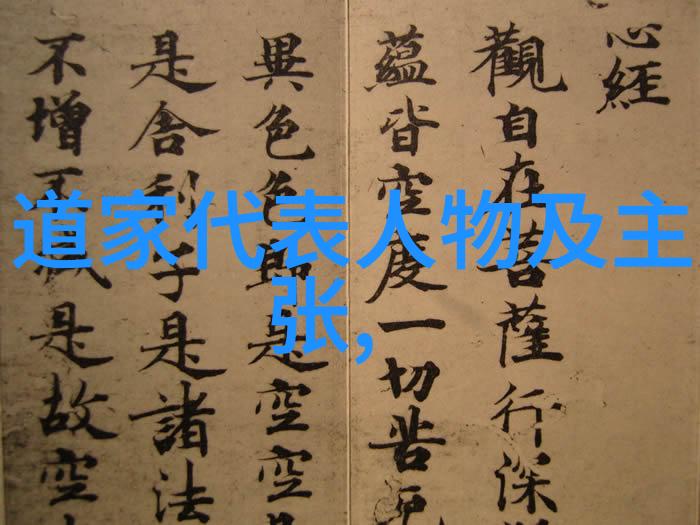 道家代表人物及主
张,
心經
觀自在菩薩行深
蘊皆空度一切苦厄
異色色即是空空是
是舍利子是諸法
不增不減是故空